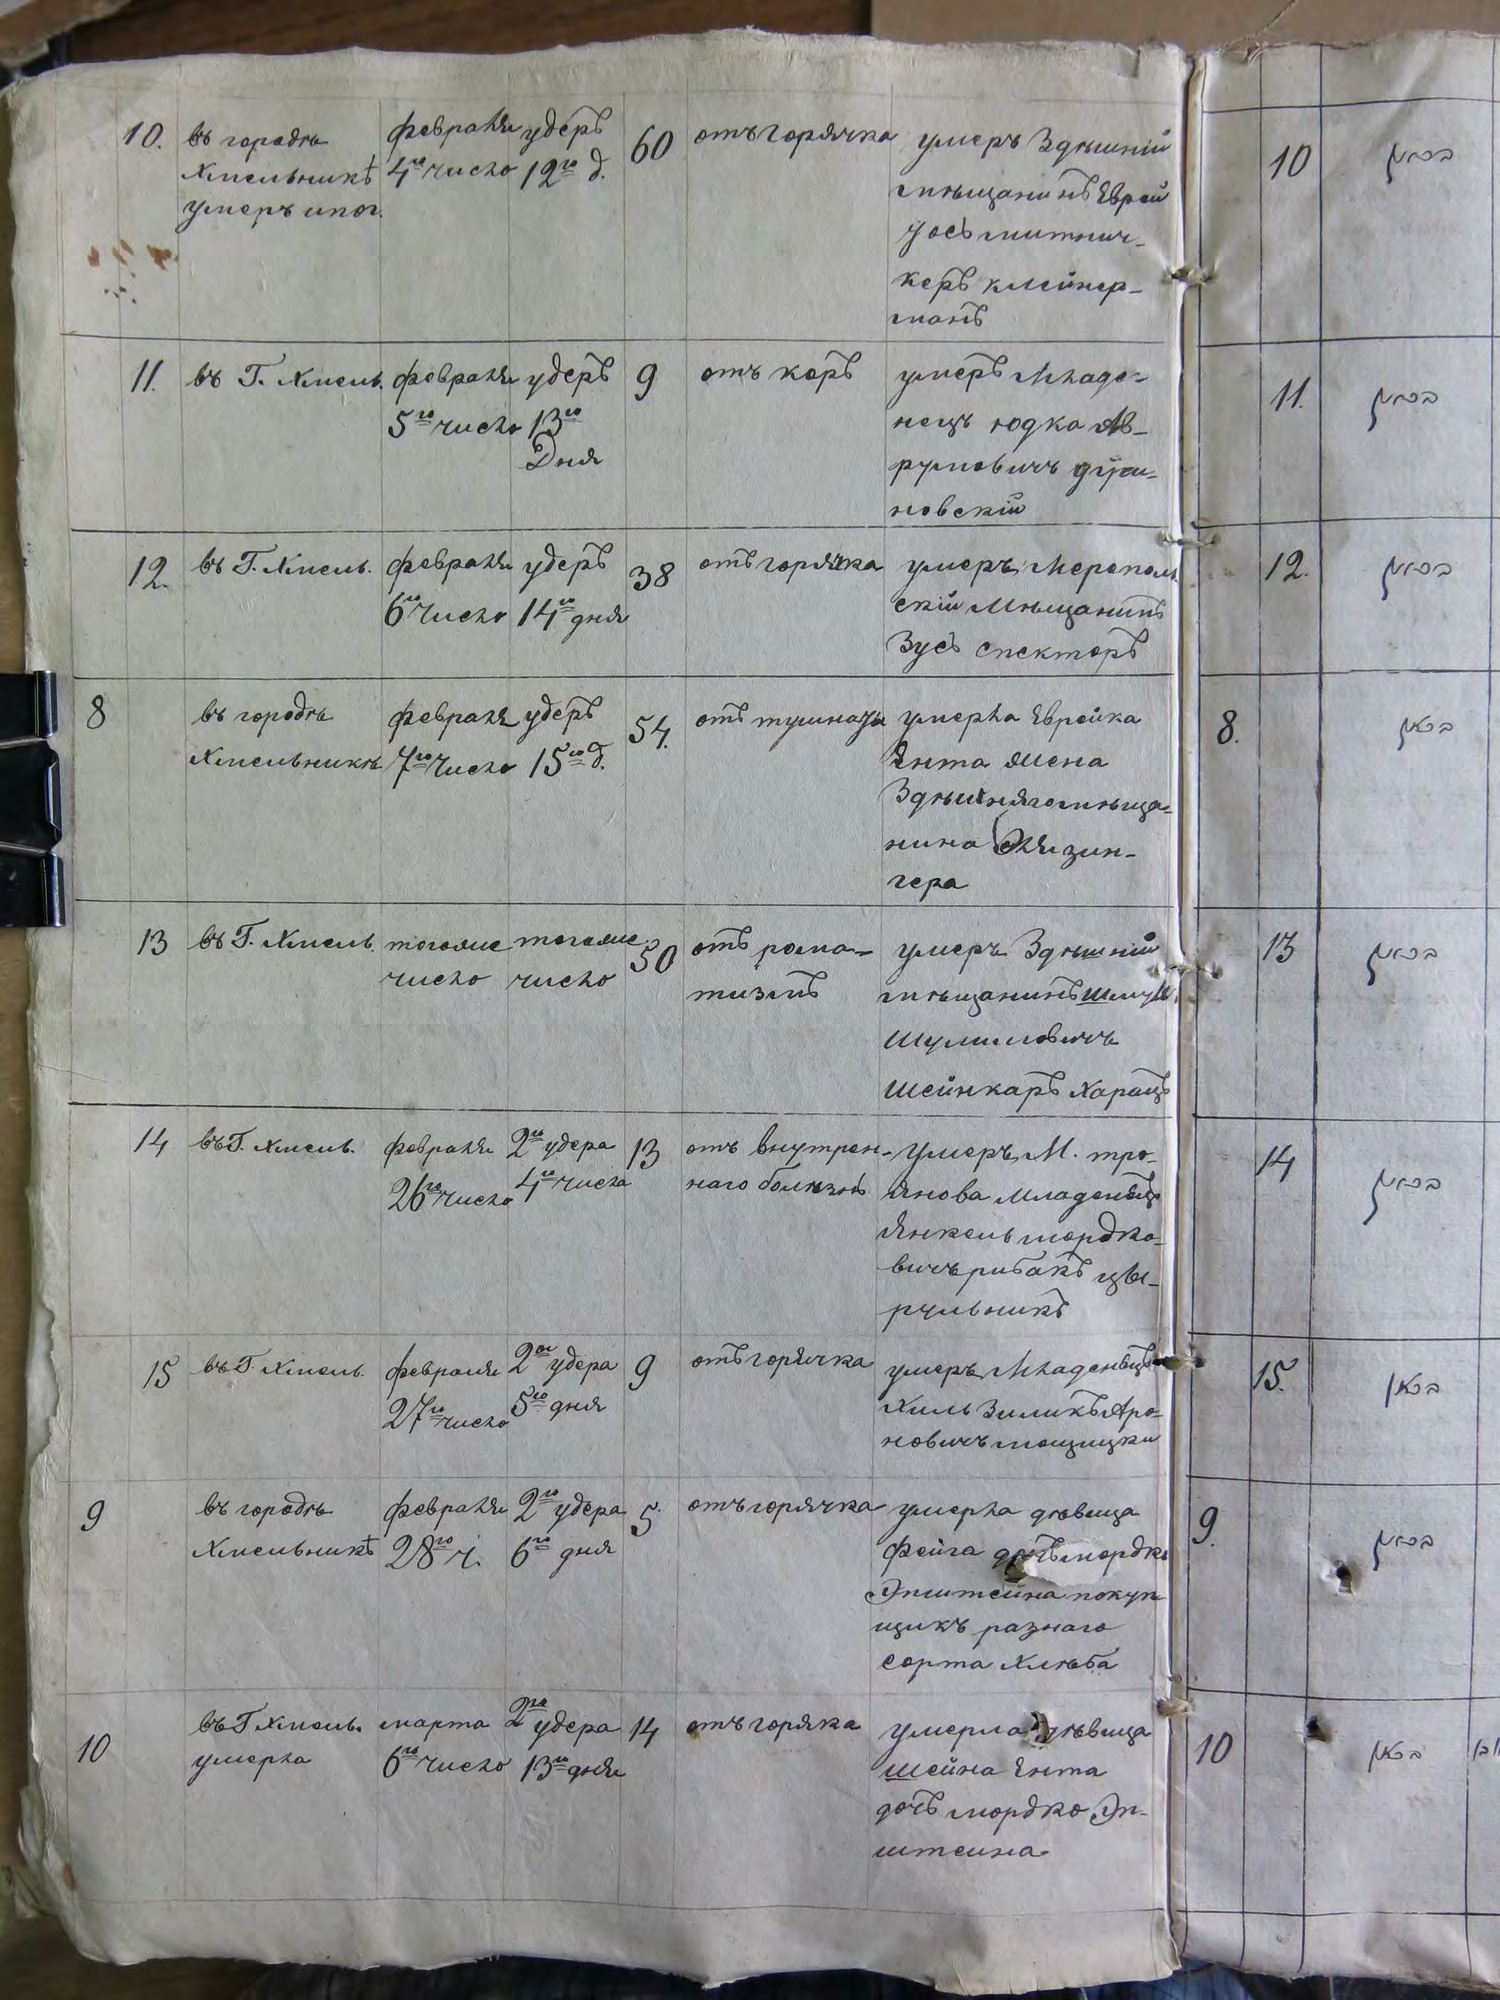 10. въ городѣ
Хмельникѣ
умеръ и пог.
февраля
4го число
удеръ
12го д.
60
отъ горячка
умеръ Здѣшній
мѣщанинъ Еврей
керъ Клейнер-
манъ
11. въ Г. Хмель.
февраля
5го число
удеръ
13го
Дня
9
отъ коръ
умеръ Младе-
нецъ Юдка Ав-
румовичъ
новскій
12. въ Г. Хмель.
февраля
6го число
удеръ
14го дня
38
отъ горячка
умеръ Мерополь
скій Мѣщанинъ
Зусь Спекторъ
8
въ городѣ
Хмельникѣ
февраля
7го число
удеръ
15го д.
54.
умерла Еврейка
Ента жена
Здѣшняго мѣща-
нина
гера
13 въ Г. Хмель.
тогоже
число
тогоже
число
50
отъ рома-
тизмъ
умеръ Здѣшній
мѣщанинъ Шмул
Шулимовичъ
Шейнкаръ
14 въ Г. Хмель.
февраля
26го число
2го удера
4го числа
13
отъ внутрен-
наго болѣзнь
умеръ М. тро-
янова младенецъ
Янкель мордко-
вичъ рибакъ цы-
рульникъ
15 въ Г. Хмель.
февраля
27го число
2го удера
5го дня
9
отъ горячка
умеръ Младенецъ
Хиль Зиликъ Аро-
новичъ
9
въ городѣ
Хмельникѣ
февраля
28го ч.
2го удера
6го дня
5.
отъ горячка
умерла дѣвица
Фейга дочъ мордко
Эпштейна покуп
щикъ разнаго
сорта Хлѣба
10
въ Г Хмель.
умерла
марта
6го число
2го удера
13го дня
14
отъ горяка
умерла дѣвица
Шейна Ента
дочъ мордко Эп-
штеина
10
11.
12.
8.
13
14
15.
9.
10